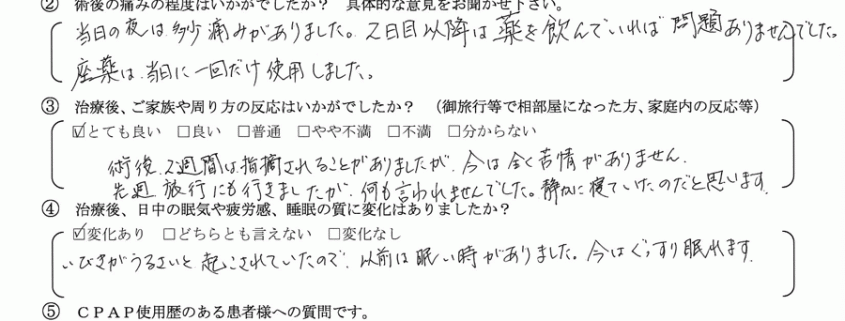 ② 術後の痛みの程度はいかがでしたか？ 具体的な意見をお聞かせ下さい。
当日の夜は多少痛みがありました。2日目以降は薬を飲んでいれば問題ありませんでした。
座薬は、当日に一回だけ使用しました。
③ 治療後、ご家族や周り方の反応はいかがでしたか？ （御旅行等で相部屋になった方、家庭内の反応等）
☑とても良い □良い □普通 □やや不満 □不満 □分からない
術後、2週間は指摘されることがありましたが、今は全く苦情がありません。
先週、旅行にも行きましたが、何も言われませんでした。静かに寝ていたのだと思います。
④ 治療後、日中の眠気や疲労感、睡眠の質に変化はありましたか？
☑変化あり □どちらとも言えない □変化なし
いびきがうるさいと起こされていたので、以前は眠い時がありました。今はぐっすり眠れます。
⑤ ＣＰＡＰ使用歴のある患者様への質問です。